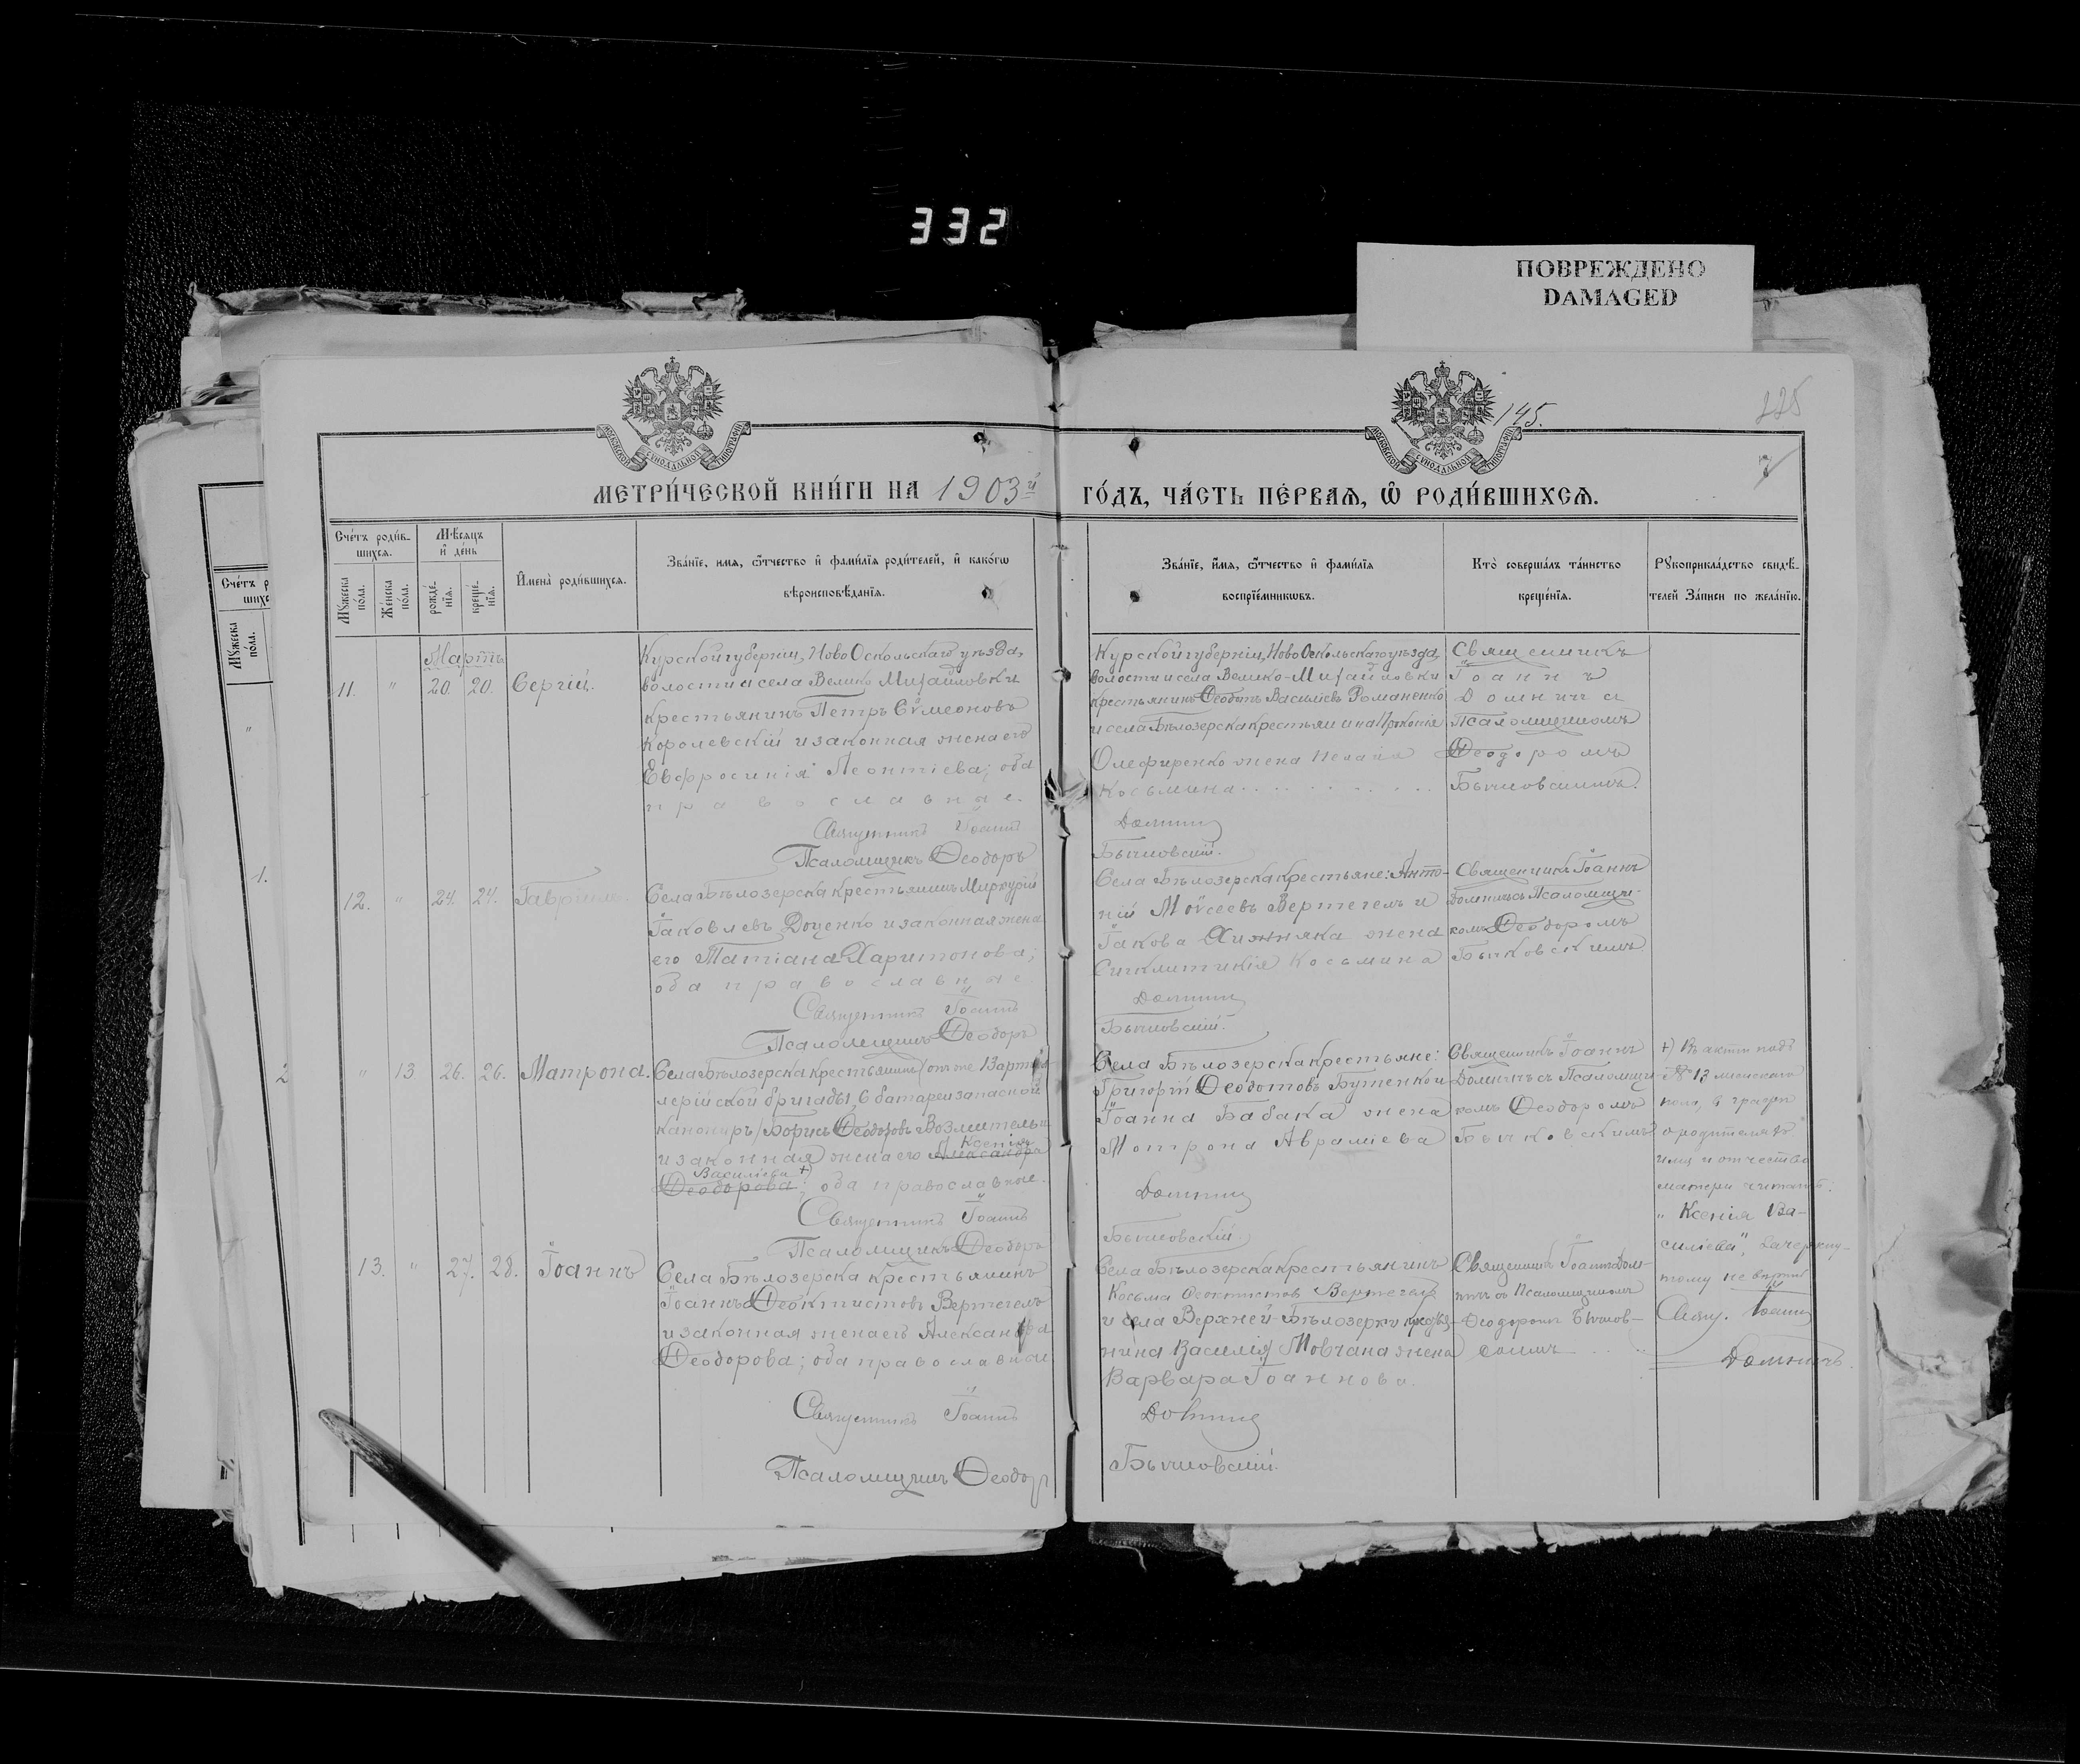 332
ПОВРЕЖДЕНО
DAMAGED
МОСКОВСКОЙ СѴНОДАЛЬНОЙ ТИПОГРАФІИ
МОСКОВСКОЙ СѴНОДАЛЬНОЙ ТИПОГРАФІИ
145.
225
7
МЕТРИ́ЧЕСКОЙ КНИ́ГИ НА 1903й
ГО́ДЪ, ЧА́СТЬ ПЕ́РВАѦ, Ѡ҆ РОДИ́ВШИХСѦ.
Сче́тъ роди́в-
шихсѧ.
Мѣ́сѧцъ
и҆ де́нь
Мꙋ́жеска
по́ла.
Же́нска
по́ла.
рожде́-
нїѧ.
креще́-
нїѧ.
И҆мена̀ роди́вшихсѧ.
Зва́нїе, имѧ, ѻ҆́тчество и҆ фами́лїѧ роди́телей, и҆ како́гѡ
вѣроисповѣ́данїѧ.
Зва́нїе, и҆́мѧ, ѻ҆́тчество и҆ фами́лїѧ
воспрїе́мникѡвъ.
Кто̀ соверша́лъ та́инство
креще́нїѧ.
Рꙋкоприкла́дство свидѣ́-
телей За́писи по жела́нїю.
Мартъ
11. " 20. 20. Сергій.
Курской губерніи, Ново Оскольскаго уѣзда,
волости и села Велико Михайловки
крестьянинъ Петръ Сѵмеоновъ
Королевскій и законная жена его
Евфросинія Леонтіева; оба
православные.
Священникъ Іоаннъ
Псаломщикъ Ѳеодоръ
Курской губерніи, Ново Оскольскаго уѣзда,
волости и села Велико-Михайловки
крестьянинъ Ѳеодотъ Василіевъ Романенко
и села Бѣлозерска крестьянина Прокопія
Олефиренко жена Пелагія
Косьмина
Домнич
Бычковскій.
Священникъ
Іоаннъ
Домничъ с
Псаломщикомъ
Ѳеодоромъ
Бычковскимъ.
12. " 24. 24. Гавріилъ.
Села Бѣлозерска крестьянинъ Меркурій
Іаковлевъ Доценко и законная жена
его Татіана Харитонова;
оба православные
Священникъ Іоаннъ
Псаломщикъ Ѳеодоръ
Села Бѣлозерска крестьяне: Анто-
ній Моѵсеевъ Вертегелъ и
Іакова Хижняка жена
Сигклитикія Косьмина
Домнич
Бычковскій.
Священникъ Іоаннъ
Домничъ съ Псаломщи-
комъ Ѳеодоромъ
Бычковскимъ
" 13 26. 26. Матрона.
Села Бѣлозерска крестьянинъ (он же 13 артил-
лерійской бригады 6 батареи запасной
канониръ) Борисъ Ѳеодоровъ Возмитель
Ксенія
и законная жена его Александра
Василіева +)
Ѳеодорова; оба православные.
Священникъ Іоаннъ
Псаломщикъ Ѳеодоръ
Села Бѣлозерска крестьяне:
Григорій Ѳеодотовъ Бутенко и
Іоанна Бабака жена
Мотрона Авраміева
Домнич
Бычковскій.
Священникъ Іоаннъ
Домничъ съ Псаломщи-
комъ Ѳеодоромъ
Бычковскимъ
+) Въ актѣ подъ
№ 13 женскаго
пола, в графѣ
о родителяхъ
имя и отчество
матери читать:
"Ксенія Ва-
силіева", зачеркну-
тому не вѣрить
Свящ. Іоаннъ
Домничъ.
13. " 27. 28. Іоаннъ
Села Бѣлозерска крестьянинъ
Іоаннъ Ѳеоктистовъ Вертегелъ
и законная жена его Александра
Ѳеодорова; оба православные
Священникъ Іоаннъ
Псаломщикъ Ѳеодор
Села Бѣлозерска крестьянинъ
Косьма Ѳеоктистовъ Вертегелъ
и села Верхней-Бѣлозерки
Василія Мовчана жена
Варвара Іоаннова.
Домнич
Бычковскій.
Священникъ Іоаннъ Дом-
ничъ съ Псаломщикомъ
Ѳеодоромъ Бычков-
скимъ